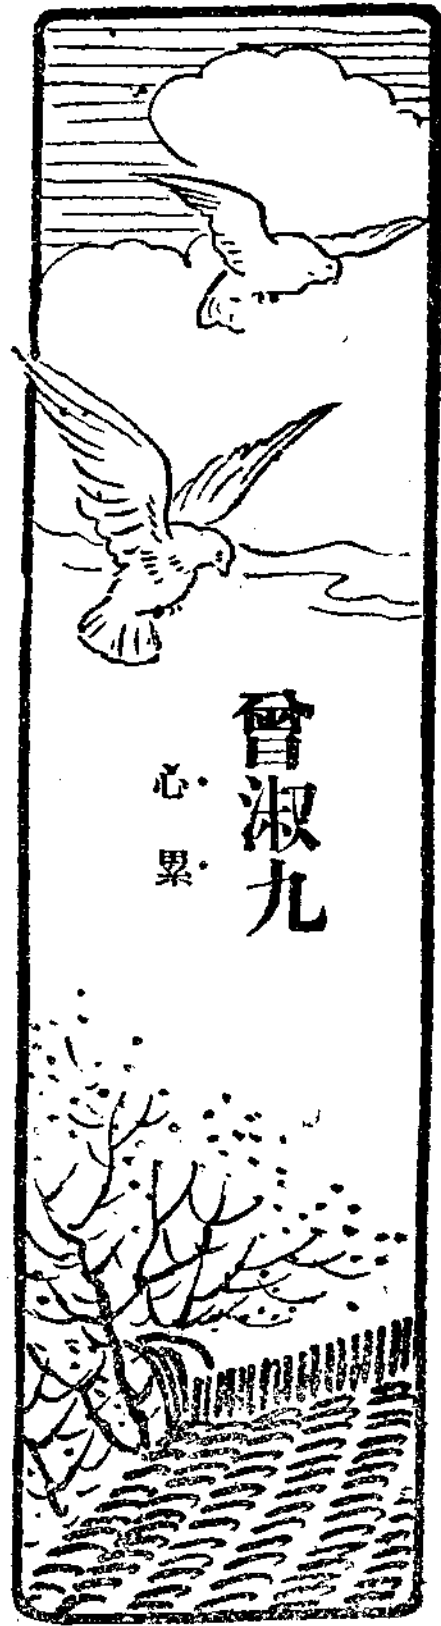 曾淑九
心·累·